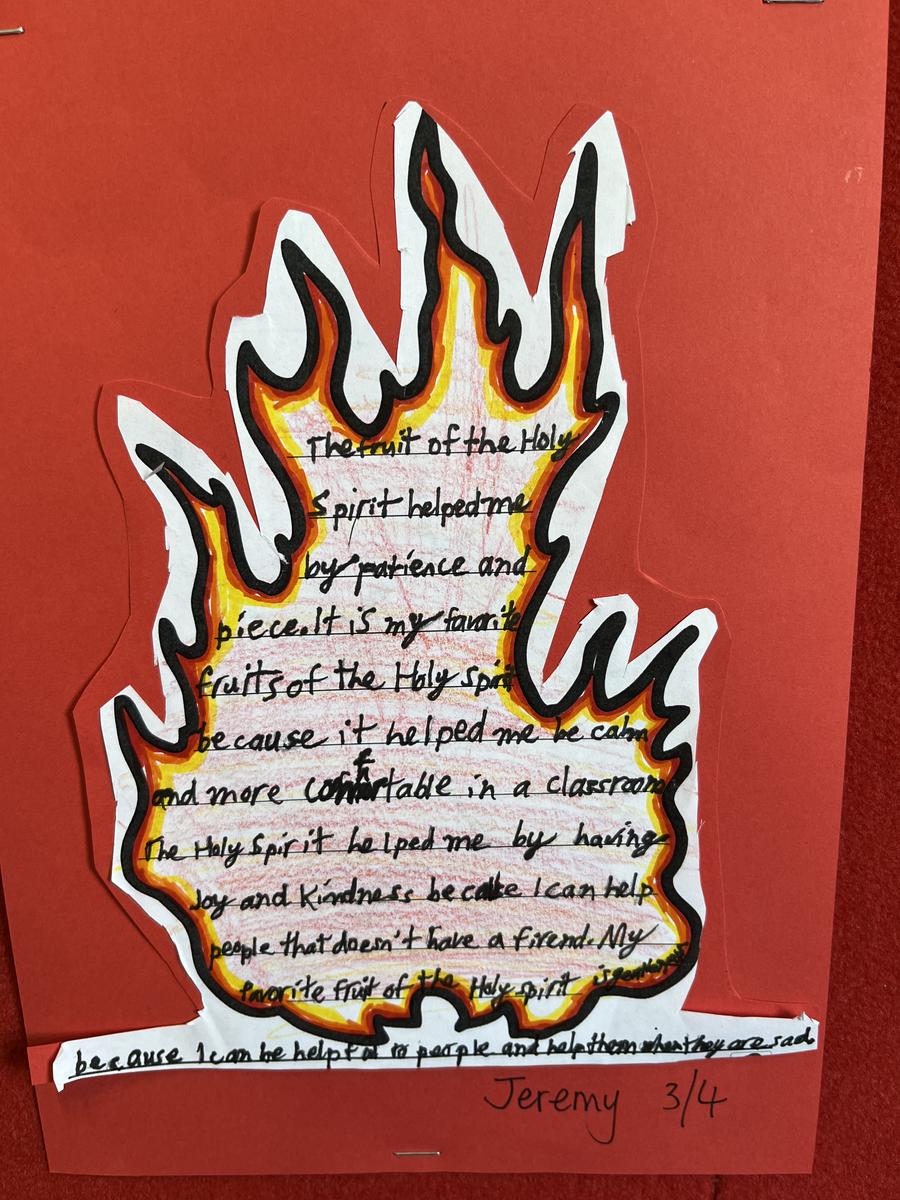 The fruit of the Holy
Spirit helped me
by patience and
piece. It is my favorite
fruits of the Holy Spirit
because it helped me be calm
and more comfortable in a classroom
The Holy Spirit helped me by having
Joy and Kindness because I can help
people that doesn't have a firend. My
favorite fruit of the Holy spirit is gentleness
because I can be helpful to people and help them when they are sad
Jeremy 3/4